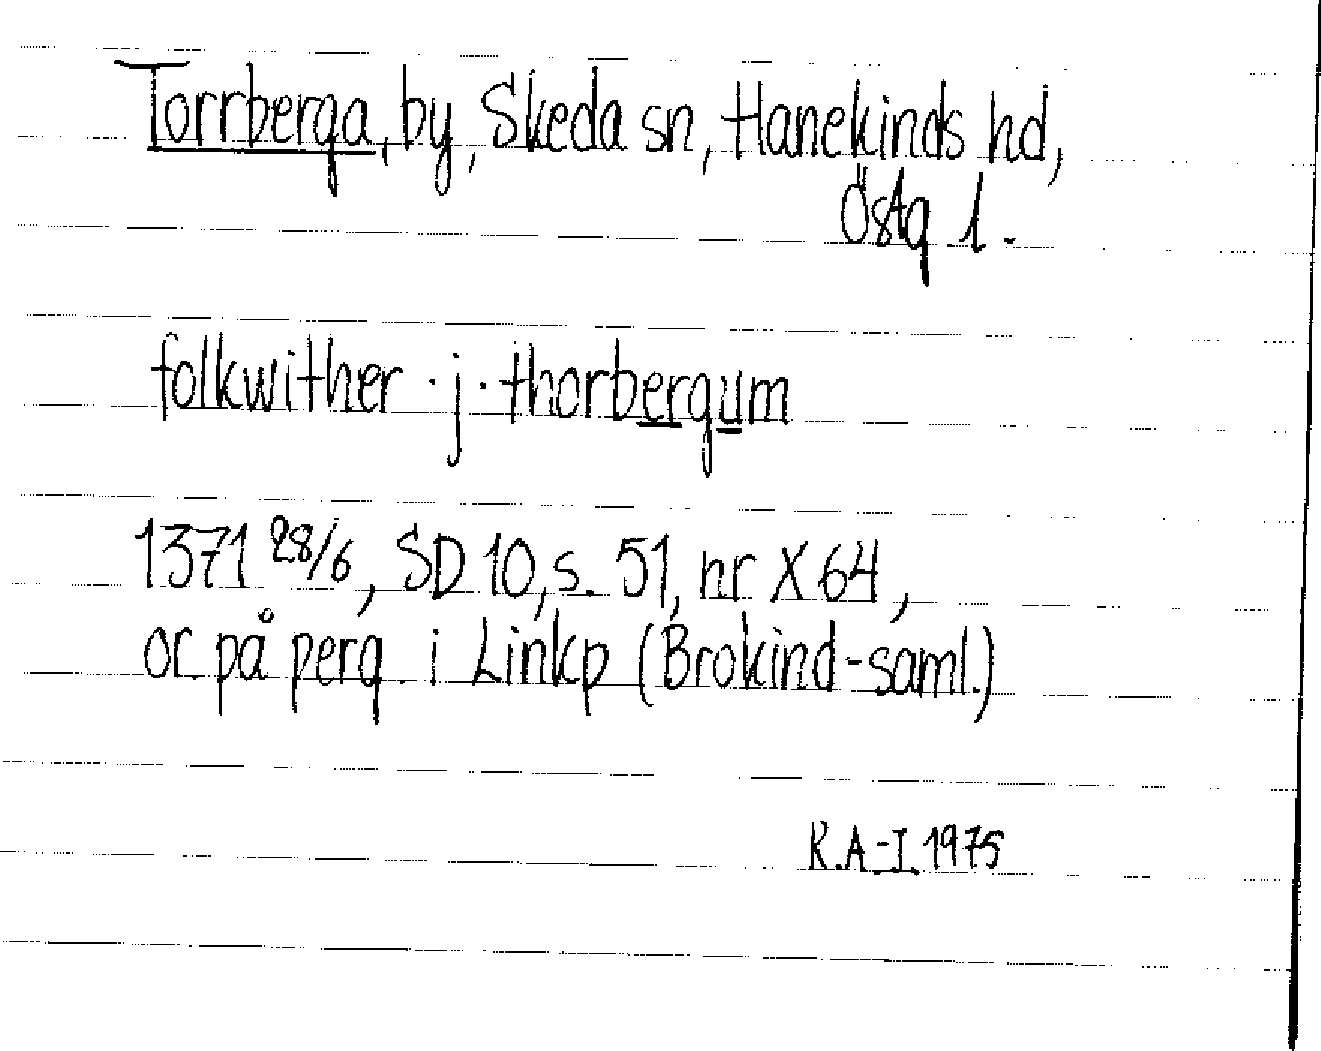 Torrberga, by, Skeda sn, Hanekinds hd,
Östg l.
folkwither · j · thorbergum
1371 28/6, SD 10, s. 51, nr X 64,
or på perg i Linkp (Brokind-saml.)
R.A-I. 1975